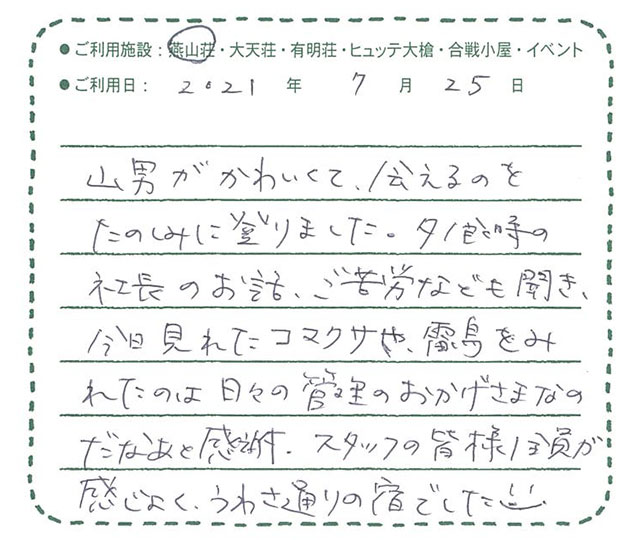 ●ご利用施設：燕山荘・大天荘・有明荘・ヒュッテ大槍・合戦小屋・イベント
●ご利用日： 2021 年 7 月 25 日
山男がかわいくて、会えるのを
たのしみに登りました。夕食時の
社長のお話、ご苦労なども聞き、
今日見れたコマクサや、雷鳥をみ
れたのは日々の管理のおかげさまなの
だなあと感謝。スタッフの皆様全員が
感じよく、うわさ通りの宿でした